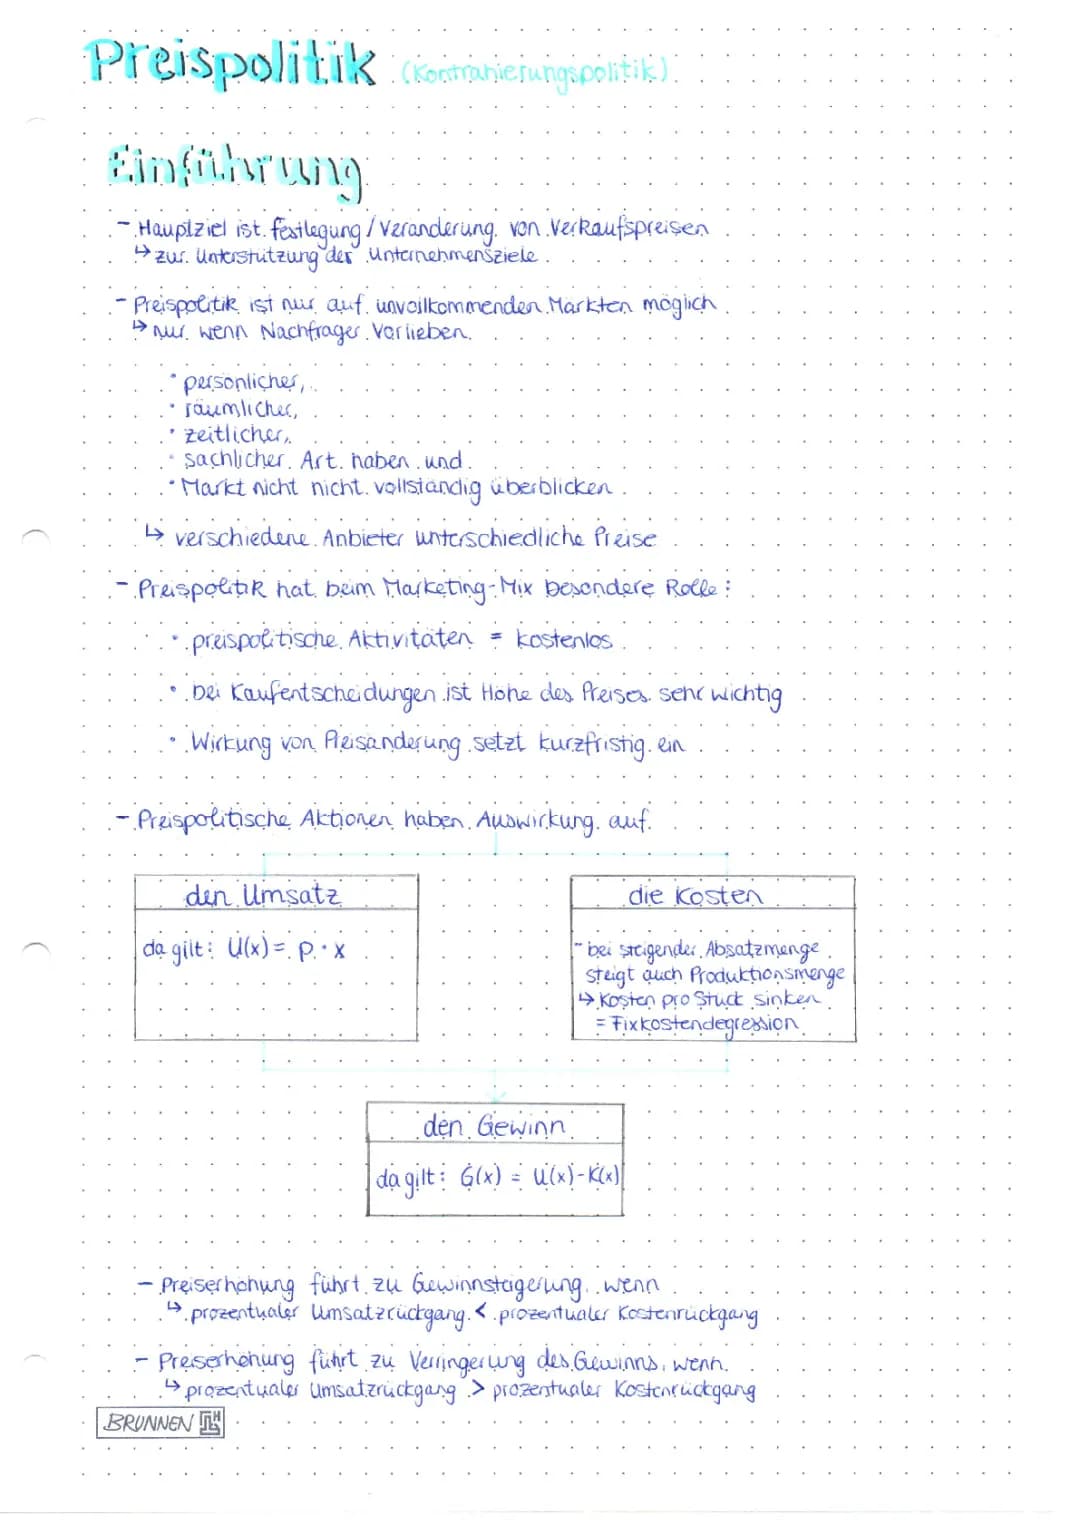 Preispolitik (Kontrahierungspolitik)
Einführung
- Hauptziel ist Festlegung / Veränderung von Verkaufspreisen
↳ zur Unterstützung der Unternehmensziele
- Preispolitik ist nur auf unvollkommenden Märkten möglich
↳ nur wenn Nachfrager Vorlieben
• persönlicher,
• räumlicher,
• zeitlicher,
• sachlicher Art haben und
• Markt nicht nicht vollständig überblicken
↳ verschiedene Anbieter unterschiedliche Preise
- Preispolitik hat beim Marketing-Mix besondere Rolle:
• preispolitische Aktivitäten = kostenlos
• bei Kaufentscheidungen ist Höhe des Preises sehr wichtig
• Wirkung von Preisänderung setzt kurzfristig ein
- Preispolitische Aktionen haben Auswirkung auf
den Umsatz
da gilt: U(x) = p · x
die Kosten
- bei steigender Absatzmenge
steigt auch Produktionsmenge
↳ Kosten pro Stück sinken
= Fixkostendegression
den Gewinn
da gilt: G(x) = U(x) - K(x)
- Preiserhöhung führt zu Gewinnsteigerung, wenn
↳ prozentualer Umsatzrückgang < prozentualer Kostenrückgang
- Preiserhöhung führt zu Verringerung des Gewinns, wenn
↳ prozentualer Umsatzrückgang > prozentualer Kostenrückgang
BRUNNEN